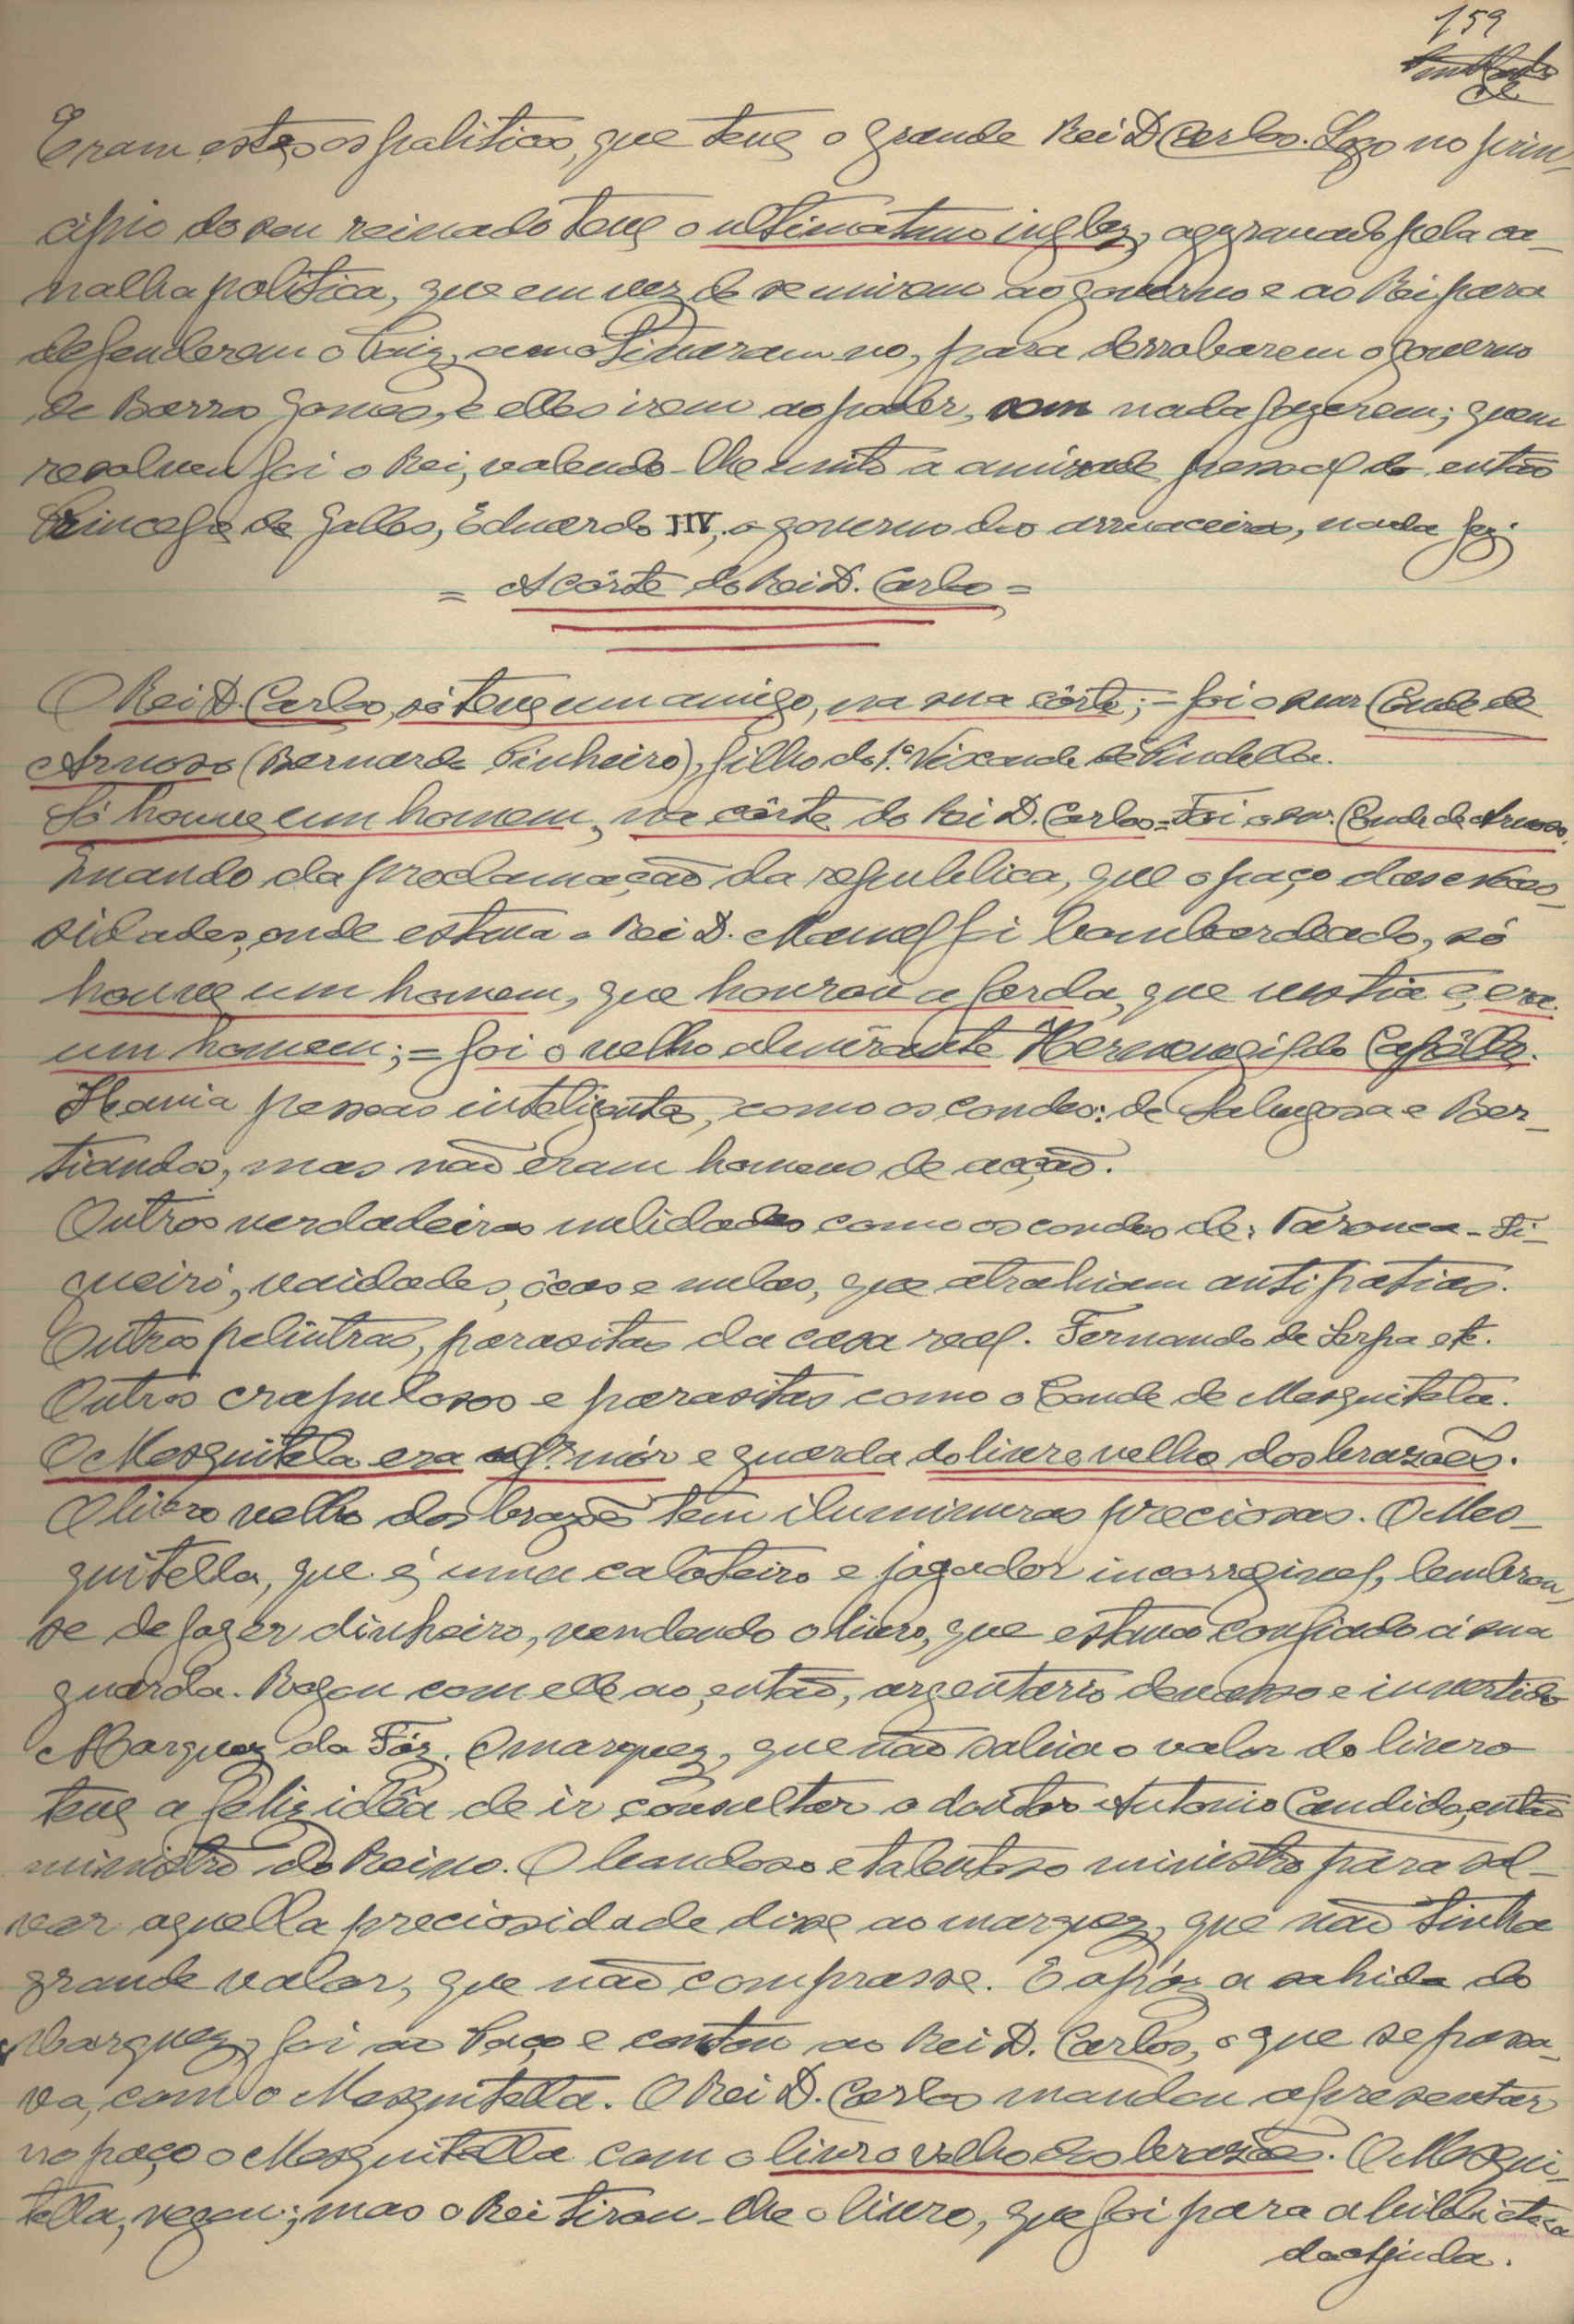 159
Eram estes os politicos, que teve o grande Rei D Carlos. Logo no prin-
cipio do seu reinado teve o ultimatum inglez, aggravado pela ca-
nalha politica, que em vez de se unirem ao governo e ao Rei para
defenderem o Paiz, amotinaram no, para derrobarem o governo
de Barros Gomes, e elles irem ao poder, sem nada fazerem; quem
resolveu foi o Rei, valendo-lhe muito a amisade pessoal do então
Principe de Galles, Eduardo IIV, o governo dos arruaceiros, nada fez.
= A côrte do Rei D. Carlos =
O Rei D. Carlos, só teve um amigo, na sua côrte; = foi o snr Conde de
Arnoso (Bernardo Pinheiro), filho do 1.º Visconde de Pindella.
Só houve um homem, na côrte do Rei D. Carlos = Foi o snr. Conde de Arnoso.
Quando da proclamação da republica, que o paço das neces-
sidades, onde estava o Rei D. Manuel foi bombardeado, só
houve um homem, que honrou a farda, que vestia e, era
um homem; = foi o velho almirante Hermenegildo Capêllo.
Havia pessoas inteligentes, como os condes: de Sabugosa e Ber-
tiandos, mas não eram homens de acção.
Outros verdadeiras nulidades como os condes de: Tarouca - Fi-
gueiró, vaidades, ôcas e nulas, que atrahiam antipatias.
Outros pelintras, parasitas da casa real. Fernando de Serpa etc.
Outros crapulosos e parasitas como o Conde de Mesquitela.
O Mesquitela era alf.es mór e guarda do livro velho dos brasões.
O livro velho dos brazões tem iluminuras preciosas. O Mes-
quitella, que é uma caloteiro e jogador incorregivel, lembrou,
se de fazer dinheiro, vendendo o livro, que estava confiado á sua
guarda. Pegou com elle ao, então, argentario devasso e invertido
Marquez da Fóz. O marquez, que não sabia o valor do livro
teve a feliz idêa de ir consultar o doutor Antonio Candido, então
ministro do Reino. O bondoso e talentoso ministro para sal-
var aquella preciosidade disse ao marquez, que não tinha
grande valor, que não comprasse. E após a sahida do
Marquez, foi ao Paço e contou ao Rei D. Carlos, o que se passa-
va, com o Mesquitella. O Rei D. Carlos mandou apresentar
no paço o Mesquitella com o livro velho dos brasões. O Mesqui-
tella, negou; mas o Rei tirou-lhe o livro, que foi para a biblioteca
da Ajuda.